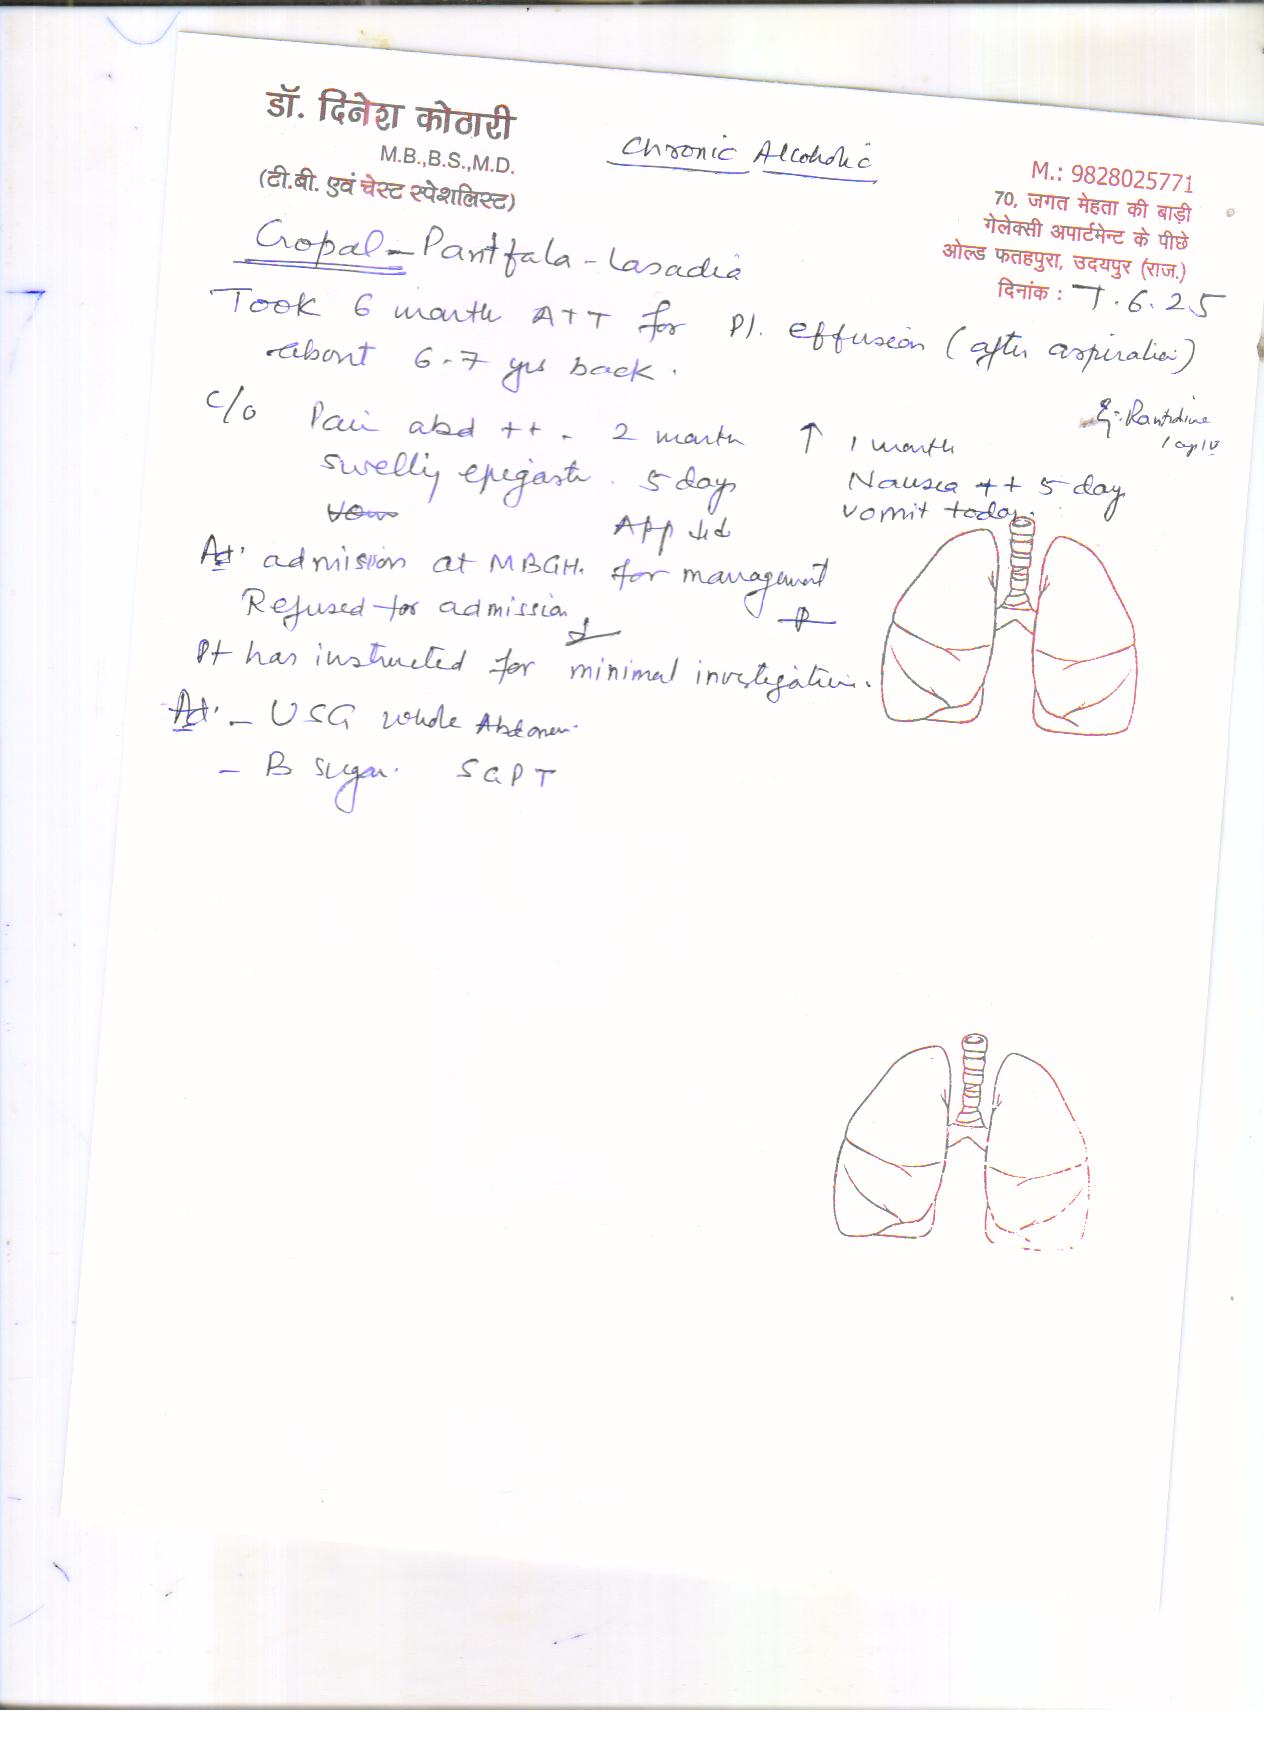 डॉ. दिनेश कोठारी
M.B.,B.S.,M.D.
(टी.बी. एवं चेस्ट स्पेशलिस्ट)
Chronic Alcoholic
M.: 9828025771
70, जगत मेहता की बाड़ी
गेलेक्सी अपार्टमेन्ट के पीछे
ओल्ड फतहपुरा, उदयपुर (राज.)
दिनांक : 7.6.25
Gopal - Pantfala - Lasadia
Took 6 month ATT for Pl. effusion (after aspiration)
about 6-7 yrs back.
C/o Pain abd ++ - 2 month ↑ 1 month
Rantidine
swelling epigast. 5 day Nausea ++ 5 day
App vomit today.
Ad. admission at MBGH. for management
Refused for admission
Pt has instructed for minimal investigation.
Ad. - USG whole Abdomen.
- B sugar. SGPT